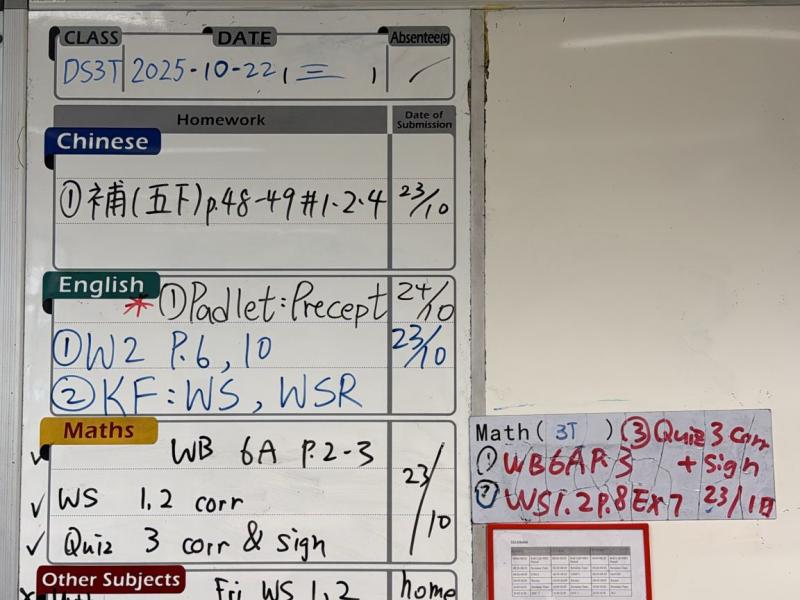 CLASS DATE Absentee(s)
DS3T 2025-10-22, 三
Homework Date of Submission
Chinese
① 補(五下)p.48-49 #1.2.4 23/10
English
* ① Padlet: Precept 24/10
① W2 P.6, 10 23/10
② KF: WS, WSR
Maths
✓ WB 6A P.2-3
✓ WS 1.2 corr 23/10
✓ Quiz 3 corr & sign
Other Subjects
Fri WS 1.2 home
Math( 3T ) ③ Quiz 3 corr
① WB6A P. 3 + sign
② WS1.2 p.8 Ex7 23/10